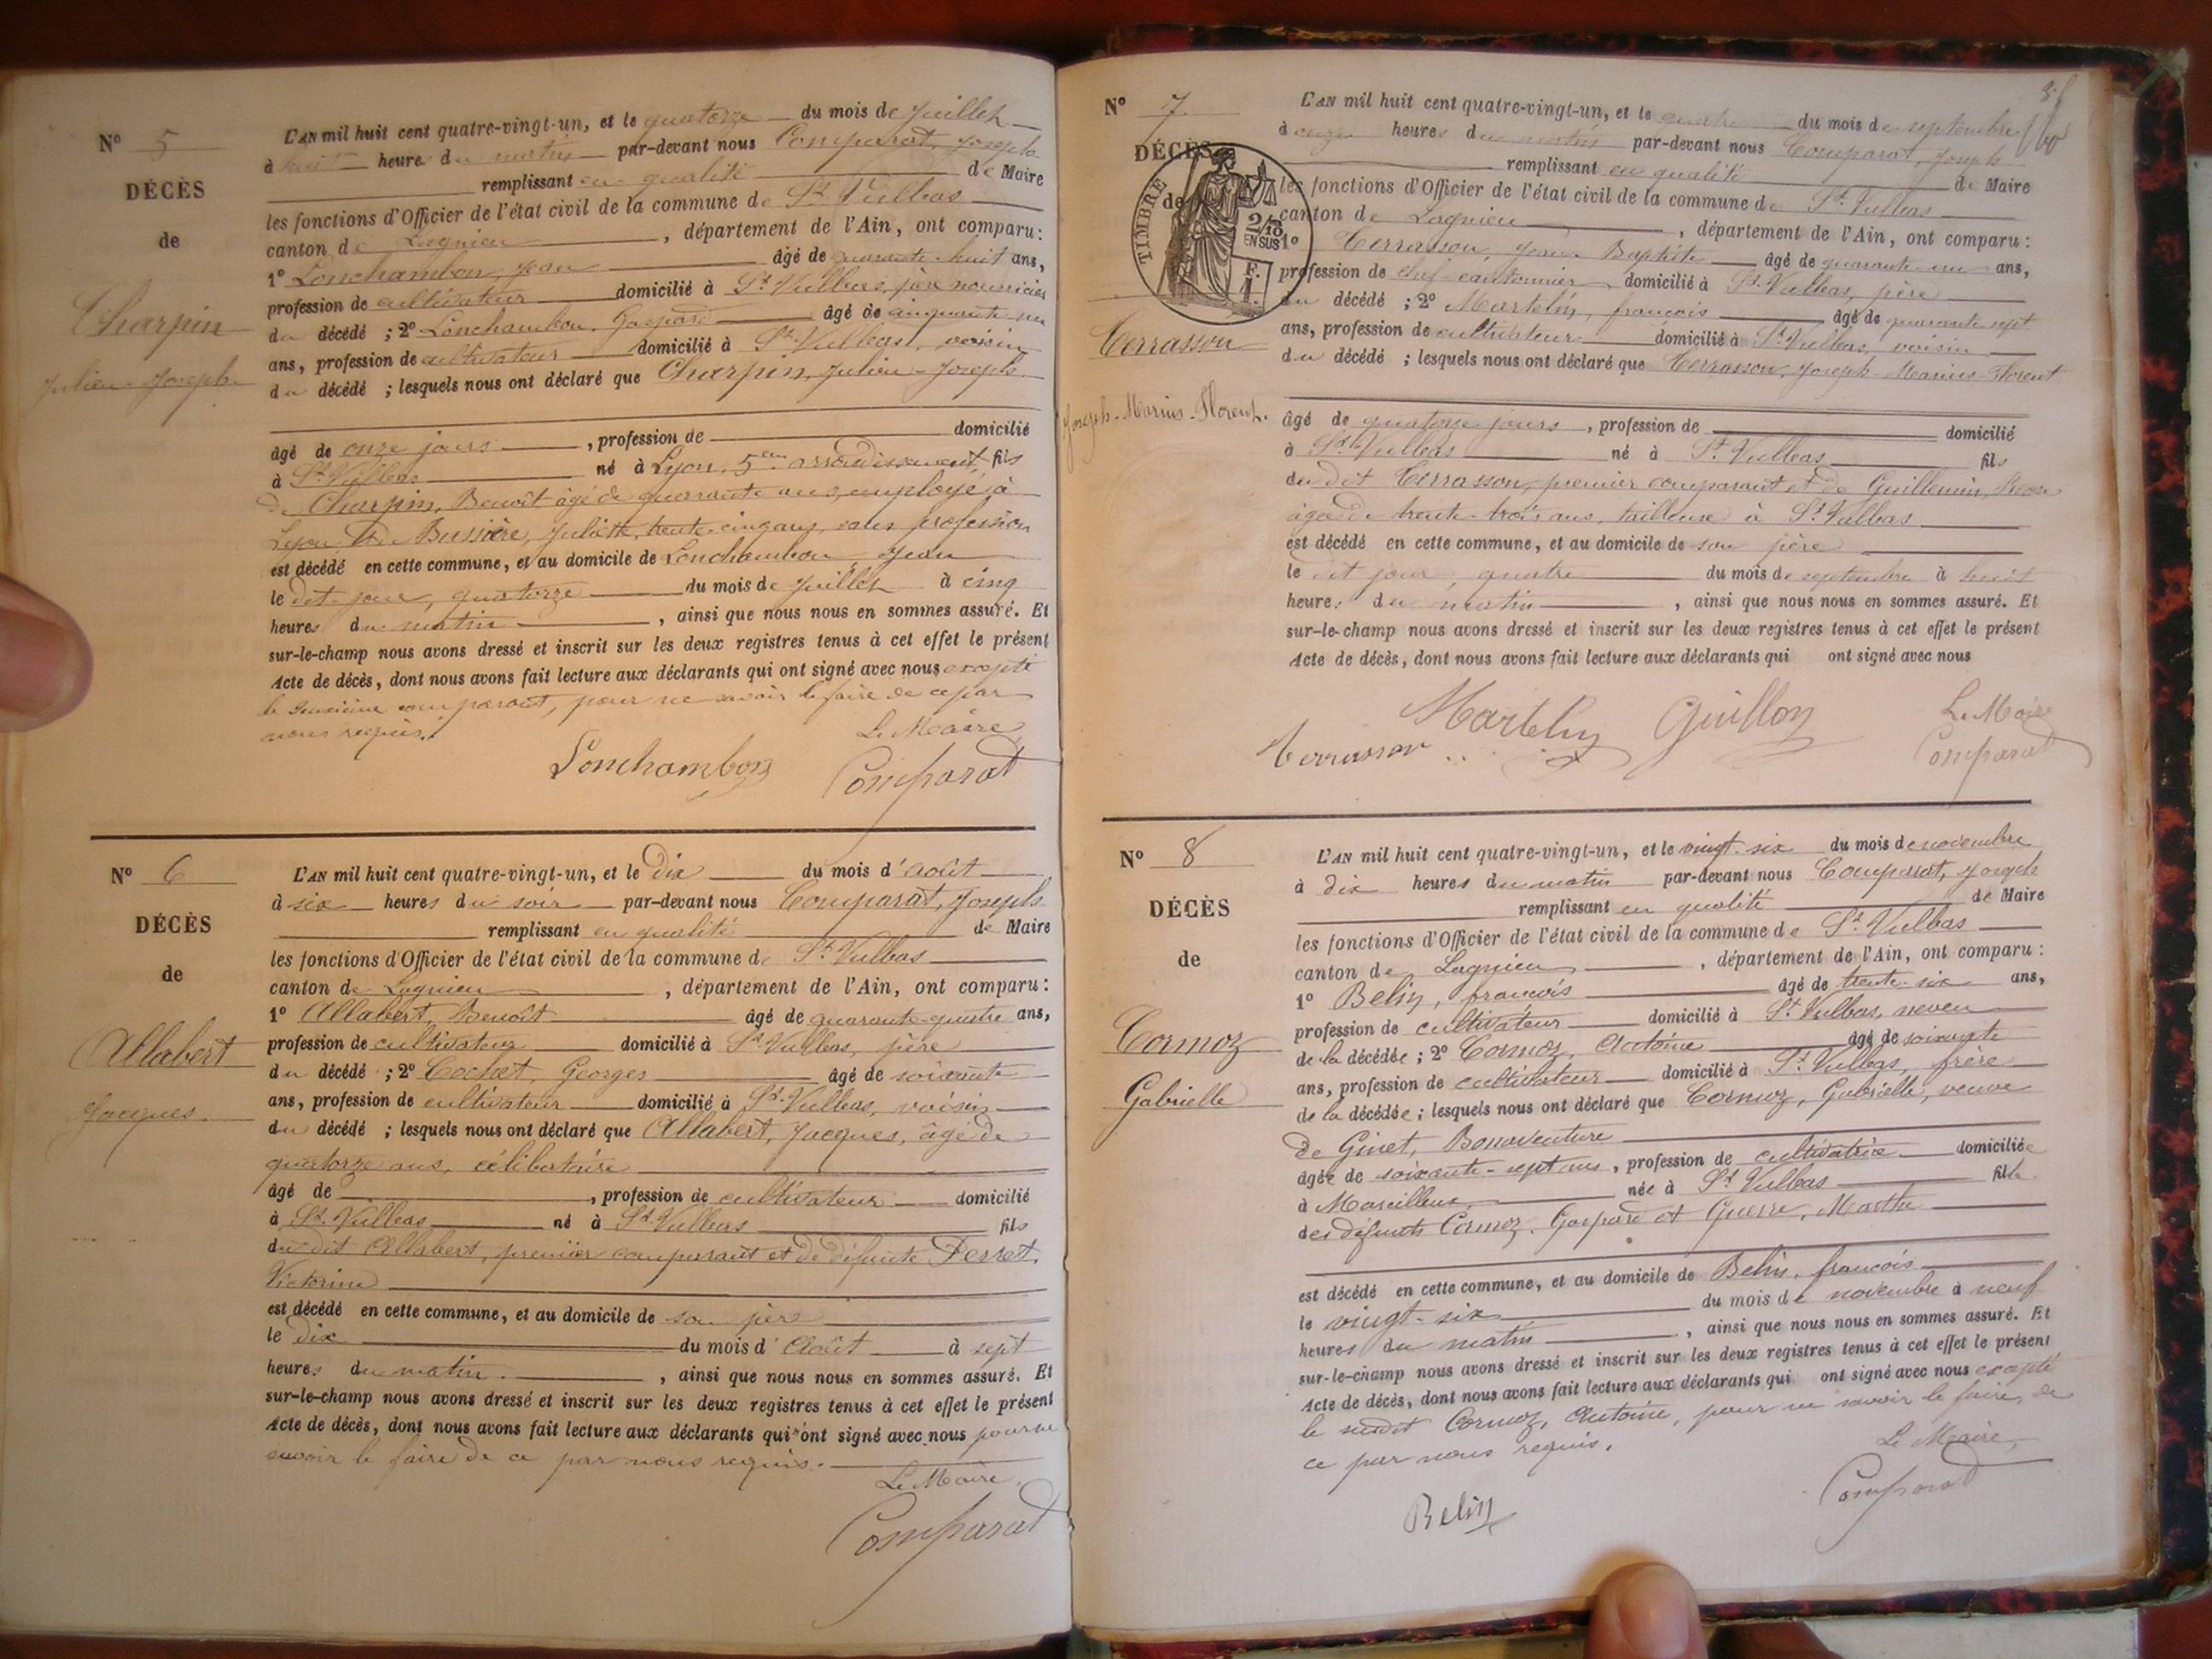 N° 5
DÉCÈS
de
Charpin
Julien-Joseph
L'AN mil huit cent quatre-vingt-un, et le quatorze du mois de juillet
à huit heure du matin par-devant nous Comparat, Joseph
remplissant en qualité de Maire
les fonctions d'Officier de l'état civil de la commune de St Vulbas
canton de Lagnieu, département de l'Ain, ont comparu:
1° Lonchambon, Jean âgé de quarante-huit ans,
profession de cultivateur domicilié à St Vulbas, père nourricier
du décédé ; 2° Lonchambon, Gaspard âgé de cinquante un
ans, profession de cultivateur domicilié à St Vulbas, voisin
du décédé ; lesquels nous ont déclaré que Charpin, Julien-Joseph
âgé de onze jours, profession de domicilié
à St Vulbas né à Lyon, 5em arrondissement, fils
de Charpin, Benoît âgé de quarante ans, employé à
Lyon et de Bussière, Juliette, trente-cinq ans, sans profession
est décédé en cette commune, et au domicile de Lonchambon, Jean
le dit jour, quatorze du mois de juillet à cinq
heures du matin, ainsi que nous nous en sommes assuré. Et
sur-le-champ nous avons dressé et inscrit sur les deux registres tenus à cet effet le présent
Acte de décès, dont nous avons fait lecture aux déclarants qui ont signé avec nous excepté
le deuxième comparant, pour ne savoir le faire de ce par
nous requis.
Le Maire,
Lonchambon Comparat
N° 6
DÉCÈS
de
Allabert
Jacques
L'AN mil huit cent quatre-vingt-un, et le dix du mois d'août
à six heures du soir par-devant nous Comparat, Joseph
remplissant en qualité de Maire
les fonctions d'Officier de l'état civil de la commune de St Vulbas
canton de Lagnieu, département de l'Ain, ont comparu:
1° Allabert, Benoît âgé de quarante-quatre ans,
profession de cultivateur domicilié à St Vulbas, père
du décédé ; 2° Cochet, Georges âgé de soixante
ans, profession de cultivateur domicilié à St Vulbas, voisin
du décédé ; lesquels nous ont déclaré que Allabert, Jacques, âgé de
quatorze ans, célibataire
âgé de, profession de cultivateur domicilié
à St Vulbas né à St Vulbas fils
du dit Allabert, premier comparant et de défunte Perret,
Victorine
est décédé en cette commune, et au domicile de son père
le dix du mois d'Août à sept
heures du matin, ainsi que nous nous en sommes assuré. Et
sur-le-champ nous avons dressé et inscrit sur les deux registres tenus à cet effet le présent
Acte de décès, dont nous avons fait lecture aux déclarants qui ont signé avec nous pour ne
savoir le faire de ce par nous requis.
Le Maire,
Comparat
N° 7
DÉCÈS
de
TIMBRE
2/10
EN SUS
F.
1.
Terrasson
Joseph-Marius-Florent.
L'AN mil huit cent quatre-vingt-un, et le quatre du mois de septembre
à onze heures du matin par-devant nous Comparat, Joseph
remplissant en qualité de Maire
les fonctions d'Officier de l'état civil de la commune de St Vulbas
canton de Lagnieu, département de l'Ain, ont comparu:
1° Terrasson, Jean Baptiste âgé de quarante-un ans,
profession de chef-cantonnier domicilié à St Vulbas, père
du décédé ; 2° Martelin, françois âgé de quarante sept
ans, profession de cultivateur domicilié à St Vulbas, voisin
du décédé ; lesquels nous ont déclaré que Terrasson, Joseph-Marius-Florent
âgé de quatorze jours, profession de domicilié
à St Vulbas né à St Vulbas fils
du dit Terrasson, premier comparant et de Guillemin,
âgée de trente-trois ans, tailleuse à St Vulbas
est décédé en cette commune, et au domicile de son père
le dit jour, quatre du mois de septembre à huit
heures du matin, ainsi que nous nous en sommes assuré. Et
sur-le-champ nous avons dressé et inscrit sur les deux registres tenus à cet effet le présent
Acte de décès, dont nous avons fait lecture aux déclarants qui ont signé avec nous
Le Maire
Terrasson Martelin Guillon Comparat
N° 8
DÉCÈS
de
Cormoz
Gabrielle
L'AN mil huit cent quatre-vingt-un, et le vingt-six du mois de novembre
à dix heures du matin par-devant nous Comparat, Joseph
remplissant en qualité de Maire
les fonctions d'Officier de l'état civil de la commune de St Vulbas
canton de Lagnieu, département de l'Ain, ont comparu:
1° Belin, françois âgé de trente-six ans,
profession de cultivateur domicilié à St Vulbas, neveu
de la décédée ; 2° Cormoz, Antoine âgé de soixante
ans, profession de cultivateur domicilié à St Vulbas, frère
de la décédée ; lesquels nous ont déclaré que Cormoz, Gabrielle, veuve
de Ginet, Bonaventure
âgée de soixante-sept ans, profession de cultivatrice domiciliée
à Marcilleux née à St Vulbas fille
des défunts Cormoz, Gaspard et Guerre, Marthe
est décédé en cette commune, et au domicile de Belin, françois
le vingt-six du mois de novembre à neuf
heures du matin, ainsi que nous nous en sommes assuré. Et
sur-le-champ nous avons dressé et inscrit sur les deux registres tenus à cet effet le présent
Acte de décès, dont nous avons fait lecture aux déclarants qui ont signé avec nous excepté
le susdit Cormoz, Antoine, pour ne savoir le faire, de
ce par nous requis.
Le Maire,
Belin Comparat